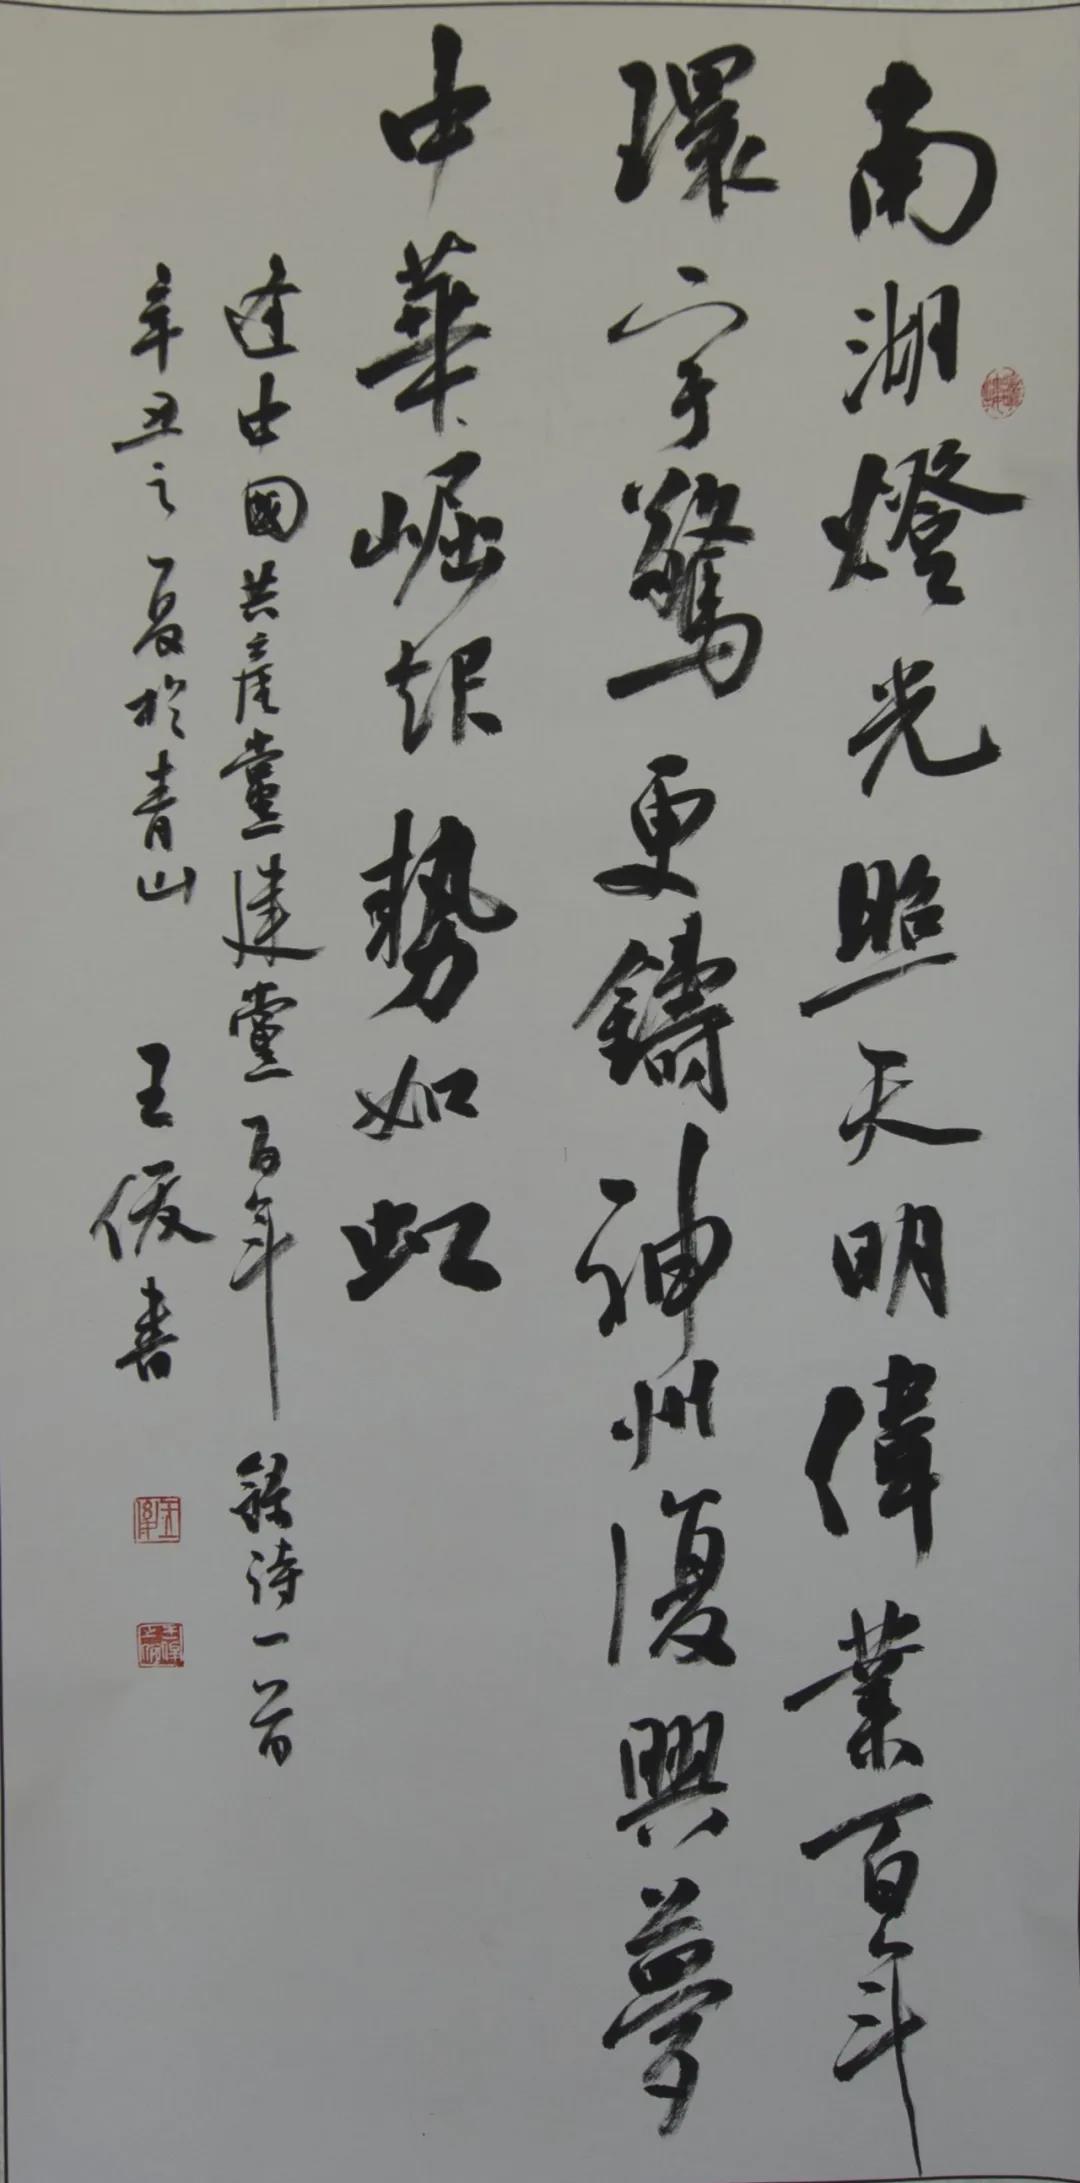 南湖燈光照天明偉業百年
環宇驚更鑄神州復興夢
中華崛起勢如虹
逢中國共產黨建黨百年 錄詩一首
辛丑之夏於青山 王俊書